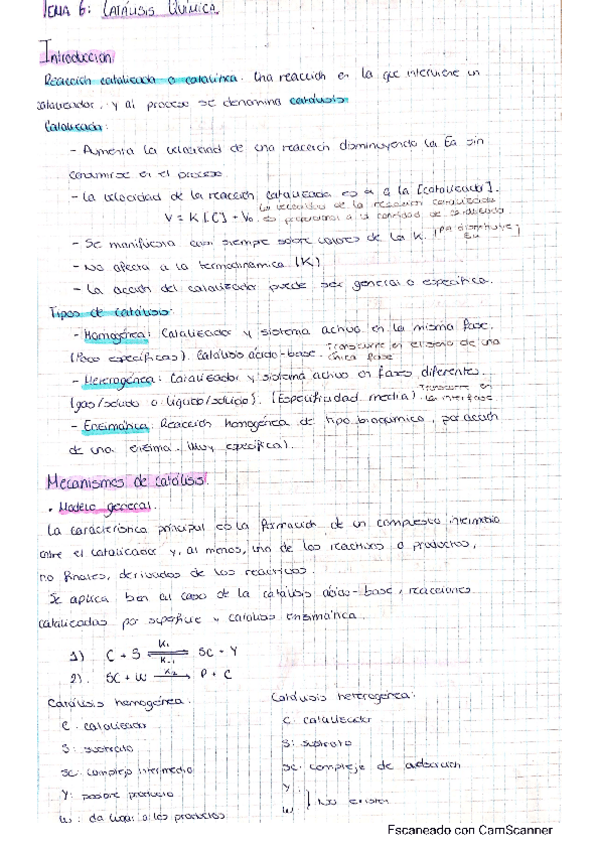 TEMA 6: CATÁLISIS QUÍMICA
Introducción
Reacción catalizada o catalítica. Una reacción en la que interviene un
catalizador, y al proceso se denomina catálisis.
Catalizador:
- Aumenta la velocidad de una reacción disminuyendo la Ea sin
consumirse en el proceso.
- La velocidad de la reacción catalizada es α a la [catalizador].
La velocidad de la reacción catalizada
V = K [C] + Vo. es proporcional a la cantidad de catalizador
- Se manifiesta casi siempre sobre valores de la K. ¡pq disminuye Ea!
- No afecta a la termodinámica (K)
- La acción del catalizador puede ser general o específica.
Tipos de catálisis:
- Homogénea: Catalizador y sistema activo en la misma fase.
(Poco específicas). Catálisis ácido-base. Transcurre en el seno de una única fase
- Heterogénea: Catalizador y sistema activo en fases diferentes.
(gas/sólido o líquido/sólido). (Especificidad media). Transcurre en la interfase
- Enzimática: Reacción homogénea de tipo bioquímico, por acción
de una enzima. (Muy específica).
Mecanismos de catálisis
• Modelo general.
La característica principal es la formación de un compuesto intermedio
entre el catalizador y, al menos, uno de los reactivos o productos,
no finales, derivados de los reactivos.
Se aplica bien al caso de la catálisis ácido-base, reacciones
catalizadas por superficie y catálisis enzimática.
1) C + S K1 K-1 SC + Y
2). SC + W K2 P + C
Catálisis homogénea. Catálisis heterogénea:
C. catalizador C. catalizador
S: sustrato S: sustrato
SC: complejo intermedio SC: complejo de adsorción
Y: posible producto Y
W: da lugar a los productos W No existen
Escaneado con CamScanner